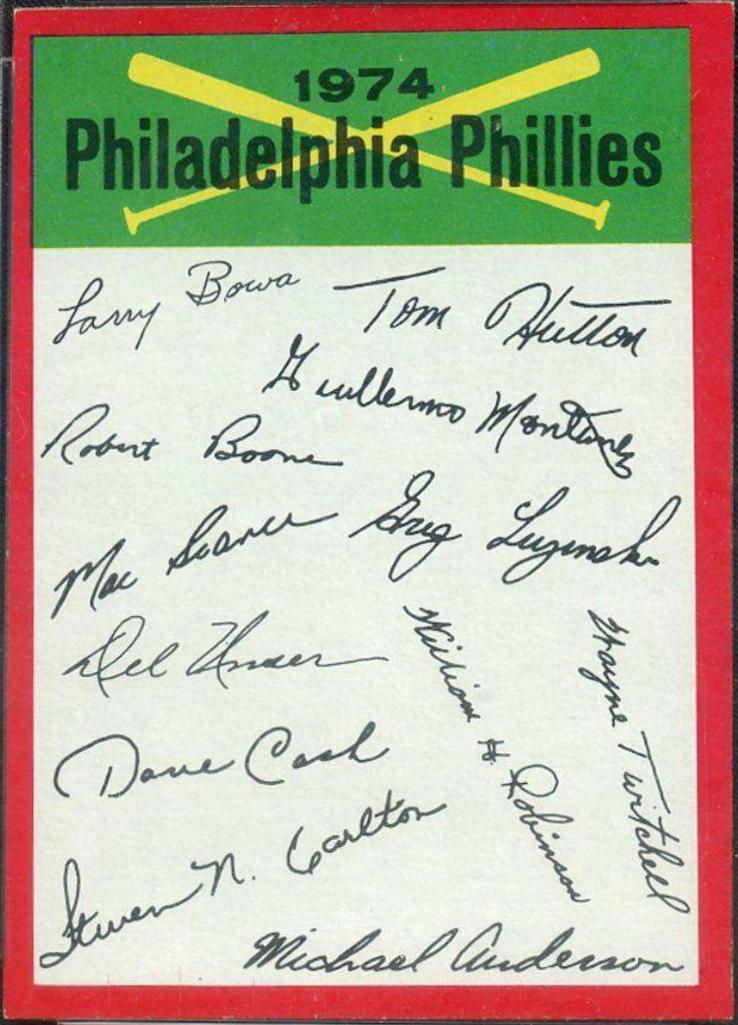 1974
Philadelphia Phillies
Larry Bowa
Tom Hutton
Guillermo Montanez
Robert Boone
Mac Scarce
Greg Luzinski
Del Unser
William H. Robinson
Wayne Twitchell
Dave Cash
Steven N. Carlton
Michael Anderson